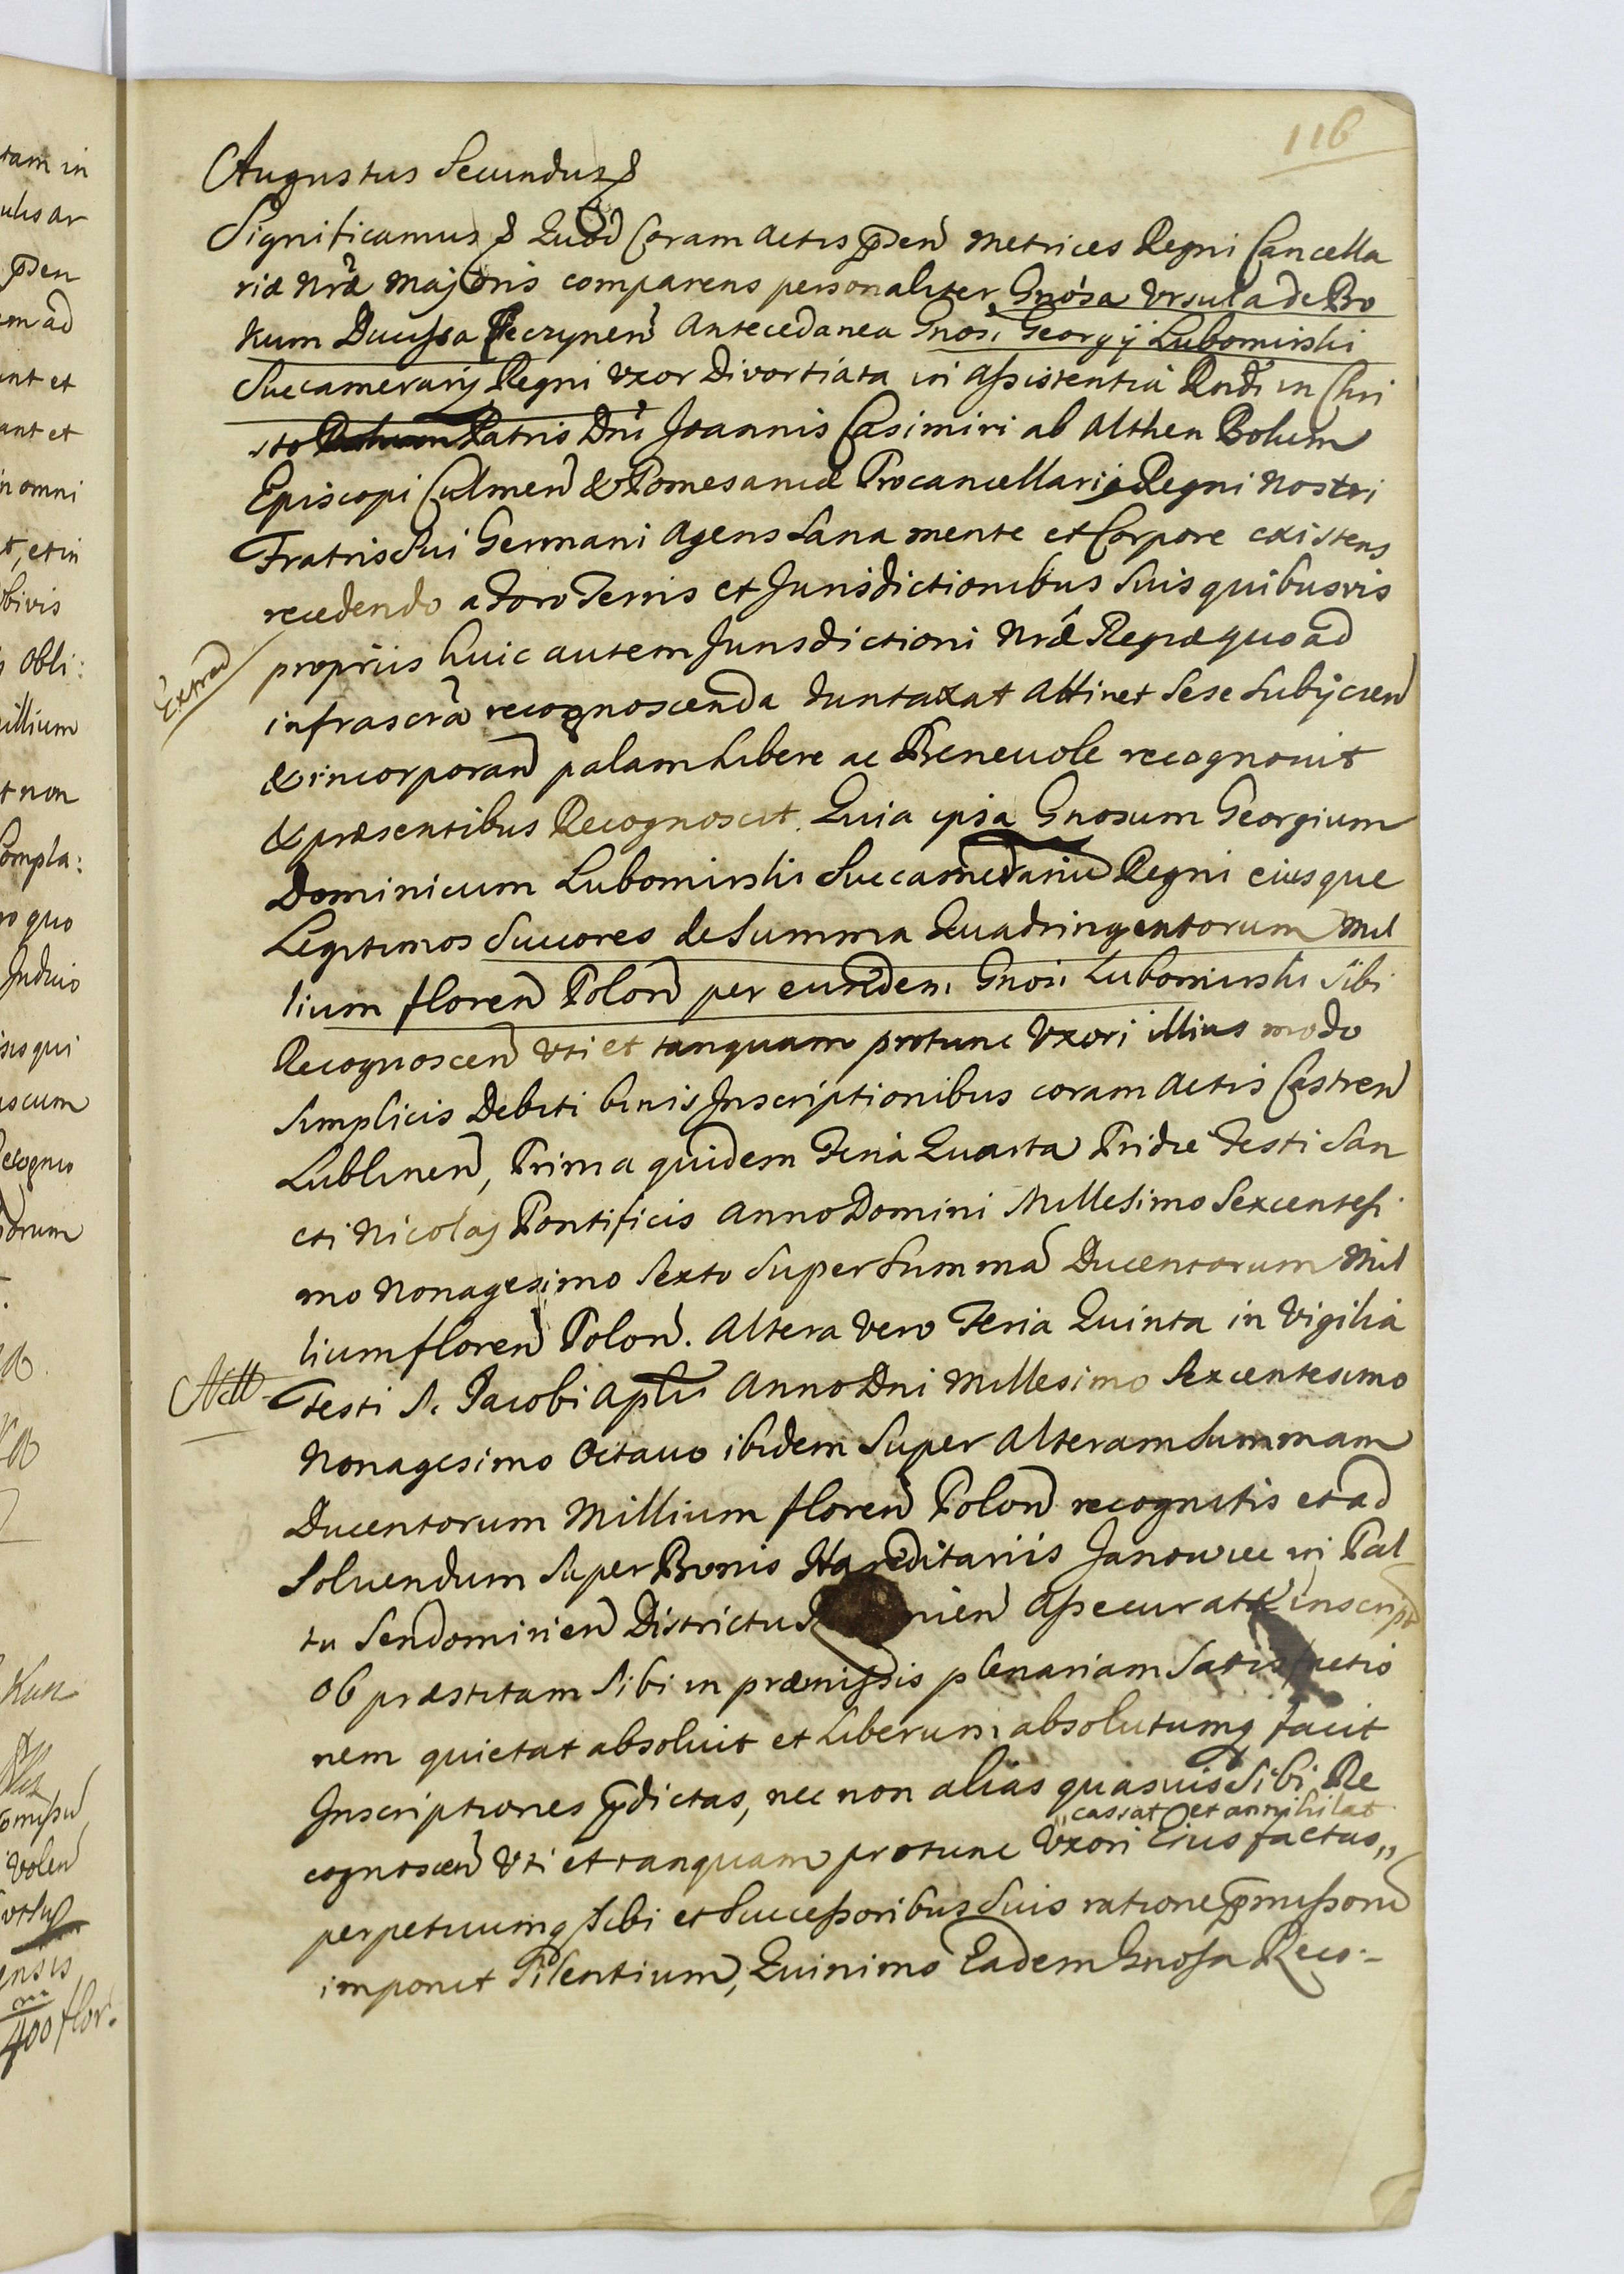 116
Augustus Secundus &
Significamus & Quod Coram Actis pden Metrices Regni Cancella
riæ Nræ Majoris comparens personaliter Gnosa Ursula de Bo
kum Ducissa Teczynen Antecedanea Gnosi Georgij Lubomirski
Succamerarij Regni Uxor Divortiata in assistentia Rndi in Chri
sto Patris Dni Joannis Casimiri ab Althen Bokum
Episcopi Culmen & Pomesaniæ Procancellarij Regni Nostri
Fratris Sui Germani Agens Sana mente et Corpore existens
recedendo a Foro Terris et Jurisdictionibus Suis quibusvis
proprijs huic autem Jurisdictioni Nræ Regiæ quoad
Extrad
infrascra recognoscenda duntaxat Attinet Sese Subijcien
& incorporan palam Libere ac Benevole recognovit
& præsentibus Recognoscit. Quia ipsa Gnosum Georgium
Dominicum Lubomirski Succamerariu Regni eiusque
Legitimos Succores de Summa Quadringentorum Mil
lium floren Polon per eundem Gnosi Lubomirski Sibi
Recognoscen Uti et tanquam protunc Uxori illius modo
Simplicis Debiti binis Inscriptionibus coram Actis Castren
Lublinen, Prima quidem Feria Quarta Pridie Festi San
cti Nicolaj Pontificis Anno Domini Millesimo Sexcentesi
mo Nonagesimo Sexto Super Summa Ducentorum Mil
lium floren Polon. Altera vero Feria Quinta in Vigilia
Festi S. Jacobi Apli Anno Dni Millesimo Sexcentesimo
Nonagesimo Octavo ibidem Super Alteram Summam
Ducentorum Millium floren Polon recognitis et ad
Solvendum Super Bonis Hæreditariis Janowiec in Pal
tu Sendomirien Districtus nien Assecurata inscript
Ob præstitam Sibi in præmissis plenariam Satisfactio
nem quietat absolvit et Liberum absolutumq facit
Inscriptiones pdictas, nec non alias quasuis Sibi Re
„ cassat et annihilat
cognoscen Uti et tanquam protunc Uxori Eius factas „
perpetuumq Sibi et Successoribus Suis ratione pmissoru
imponit Silentium, Quinimo Eadem Gnosa Reco-